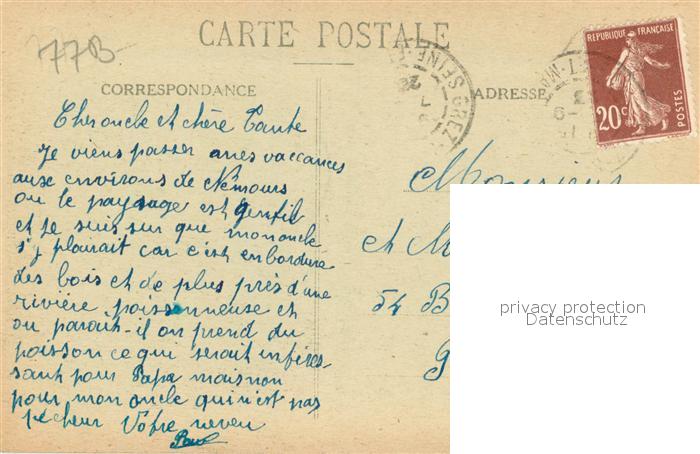 77B
CARTE POSTALE
CORRESPONDANCE
ADRESSE
REPUBLIQUE FRANÇAISE
20c
POSTES
GREZ
SEINE
Cher oncle et chère Tante
Je viens passer mes vaccances
aux environs de Némours
ou le paysage est gentil
et je suis sur que mon oncle
s'y plairait car c'est en bordure
des bois et de plus près d'une
rivière poissonneuse et
ou parait-il on prend du
poisson ce qui serait intéres-
sant pour Papa mais non
pour mon oncle qui n'est pas
pécheur Votre neveu
Paul
Monsieur
et M
54 B
privacy protection
Datenschutz